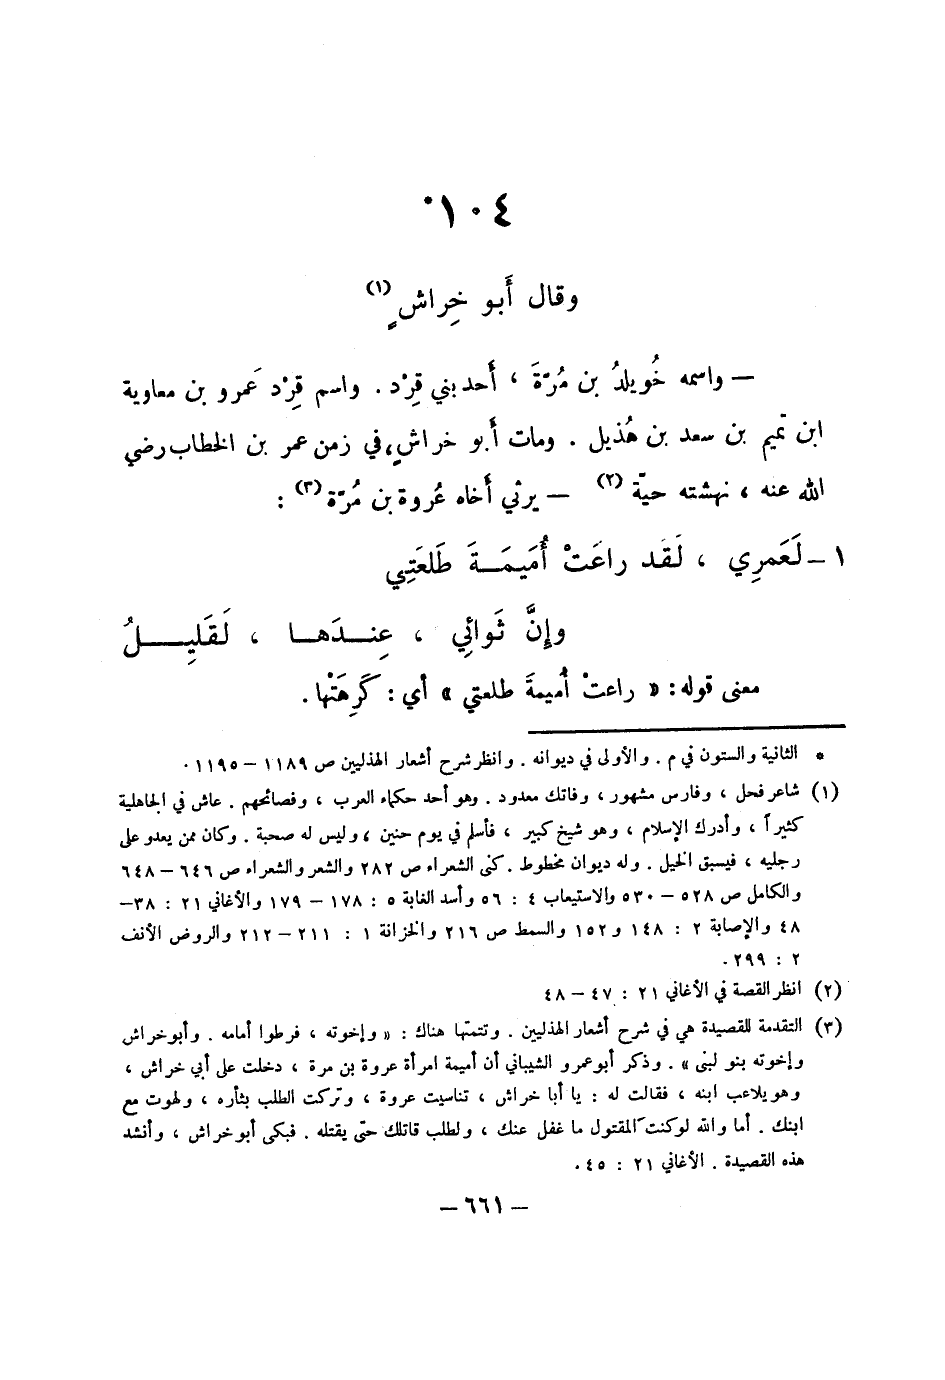 ١٠٤*
وقال أَبو خِراشٍ (١)
— واسمه خُويلدُ بن مُرّةَ ، أَحد بني قِرْد . واسم قِرْد عَمرو بن معاوية
ابن تميم بن سعد بن هُذيل . ومات أَبو خراشٍ، في زمن عمر بن الخطاب رضي
الله عنه ، نهشته حيّة (٢) — يرثي أَخاه عُروة بن مُرّة (٣) :
١ – لَعَمرِي ، لَقَد راعَتْ أُمَيمَةَ طَلعَتِي
وإِنَّ ثَوائِي ، عِندَها ، لَقَلِيلُ
معنى قوله : « راعتْ أُميمةَ طلعتي » أي : كَرِهَتْها .
* الثانية والستون في م . والأولى في ديوانه . وانظر شرح أشعار الهذليين ص ١١٨٩ – ١١٩٥ .
(١) شاعر فحل ، وفارس مشهور ، وفاتك معدود . وهو أحد حكماء العرب ، وفصائحهم . عاش في الجاهلية
كثيراً ، وأدرك الإسلام ، وهو شيخ كبير ، فأسلم في يوم حنين ، وليس له صحبة . وكان ممن يعدو على
رجليه ، فيسبق الخيل . وله ديوان مخطوط . كنى الشعراء ص ٢٨٢ والشعر والشعراء ص ٦٤٦ – ٦٤٨
والكامل ص ٥٢٨ – ٥٣٠ والاستيعاب ٤ : ٥٦ وأسد الغابة ٥ : ١٧٨ – ١٧٩ والأغاني ٢١ : ٣٨–
٤٨ والإصابة ٢ : ١٤٨ و ١٥٢ والسمط ص ٢١٦ والخزانة ١ : ٢١١ – ٢١٢ والروض الأنف
٢ : ٢٩٩ .
(٢) انظر القصة في الأغاني ٢١ : ٤٧ – ٤٨
(٣) التقدمة للقصيدة هي في شرح أشعار الهذليين . وتتمتها هناك : « وإخوته ، فرطوا أمامه . وأبو خراش
وإخوته بنو لبنى » . وذكر أبو عمرو الشيباني أن أميمة امرأة عروة بن مرة ، دخلت على أبي خراش ،
وهو يلاعب ابنه ، فقالت له : يا أبا خراش ، تناسيت عروة ، وتركت الطلب بثأره ، ولهوت مع
ابنك . أما والله لو كنت المقتول ما غفل عنك ، ولطلب قاتلك حتى يقتله . فبكى أبو خراش ، وأنشد
هذه القصيدة . الأغاني ٢١ : ٤٥ .
– ٦٦١ –